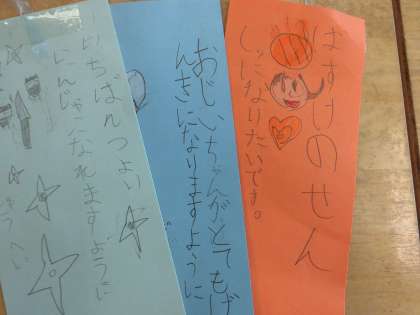 ばすけのせん
しゅになりたいです。
おじいちゃんがとてもげ
んきになりますように
いちばんつよい
にんじゃになれますように